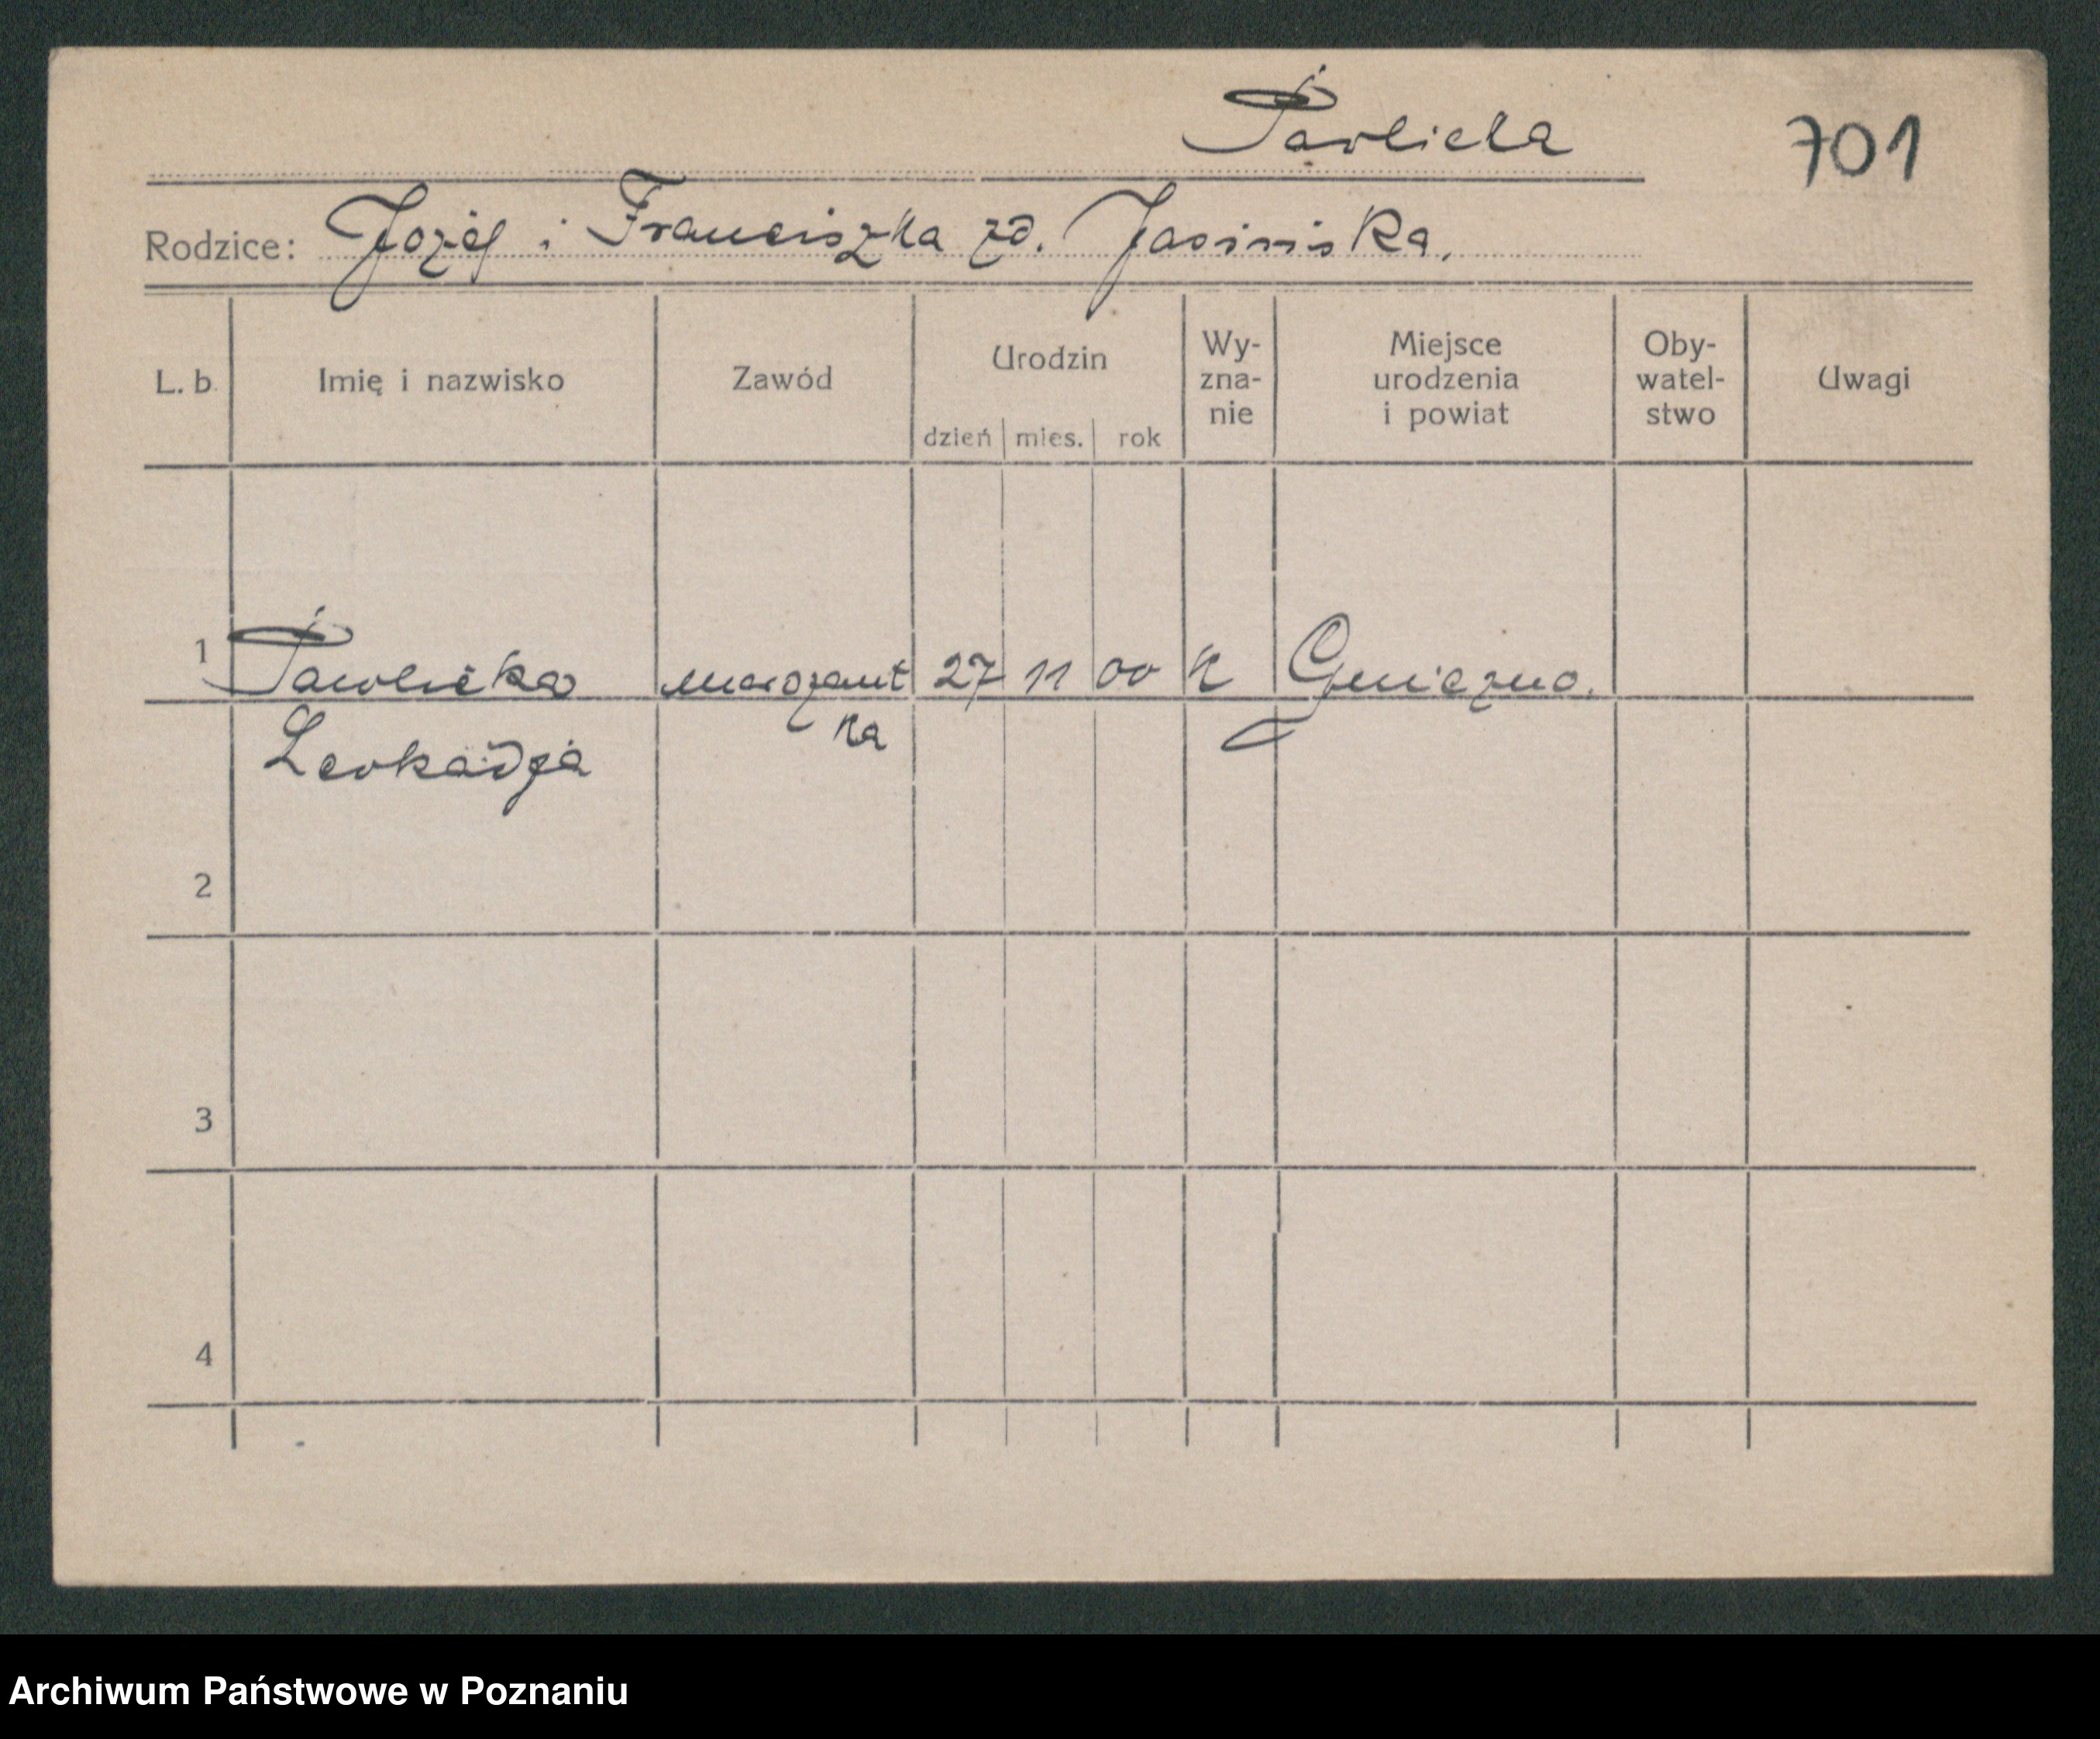 Pawlicka
701
Rodzice: Józef i Franciszka zd. Jasińska.
L. b. Imię i nazwisko Zawód Urodzin Wy-zna-nie Miejsce urodzenia i powiat Oby-watel-stwo Uwagi
dzień mies. rok
1 Pawlicka 27 11 00 k Gniezno.
ka
Leokadja
2
3
4
Archiwum Państwowe w Poznaniu